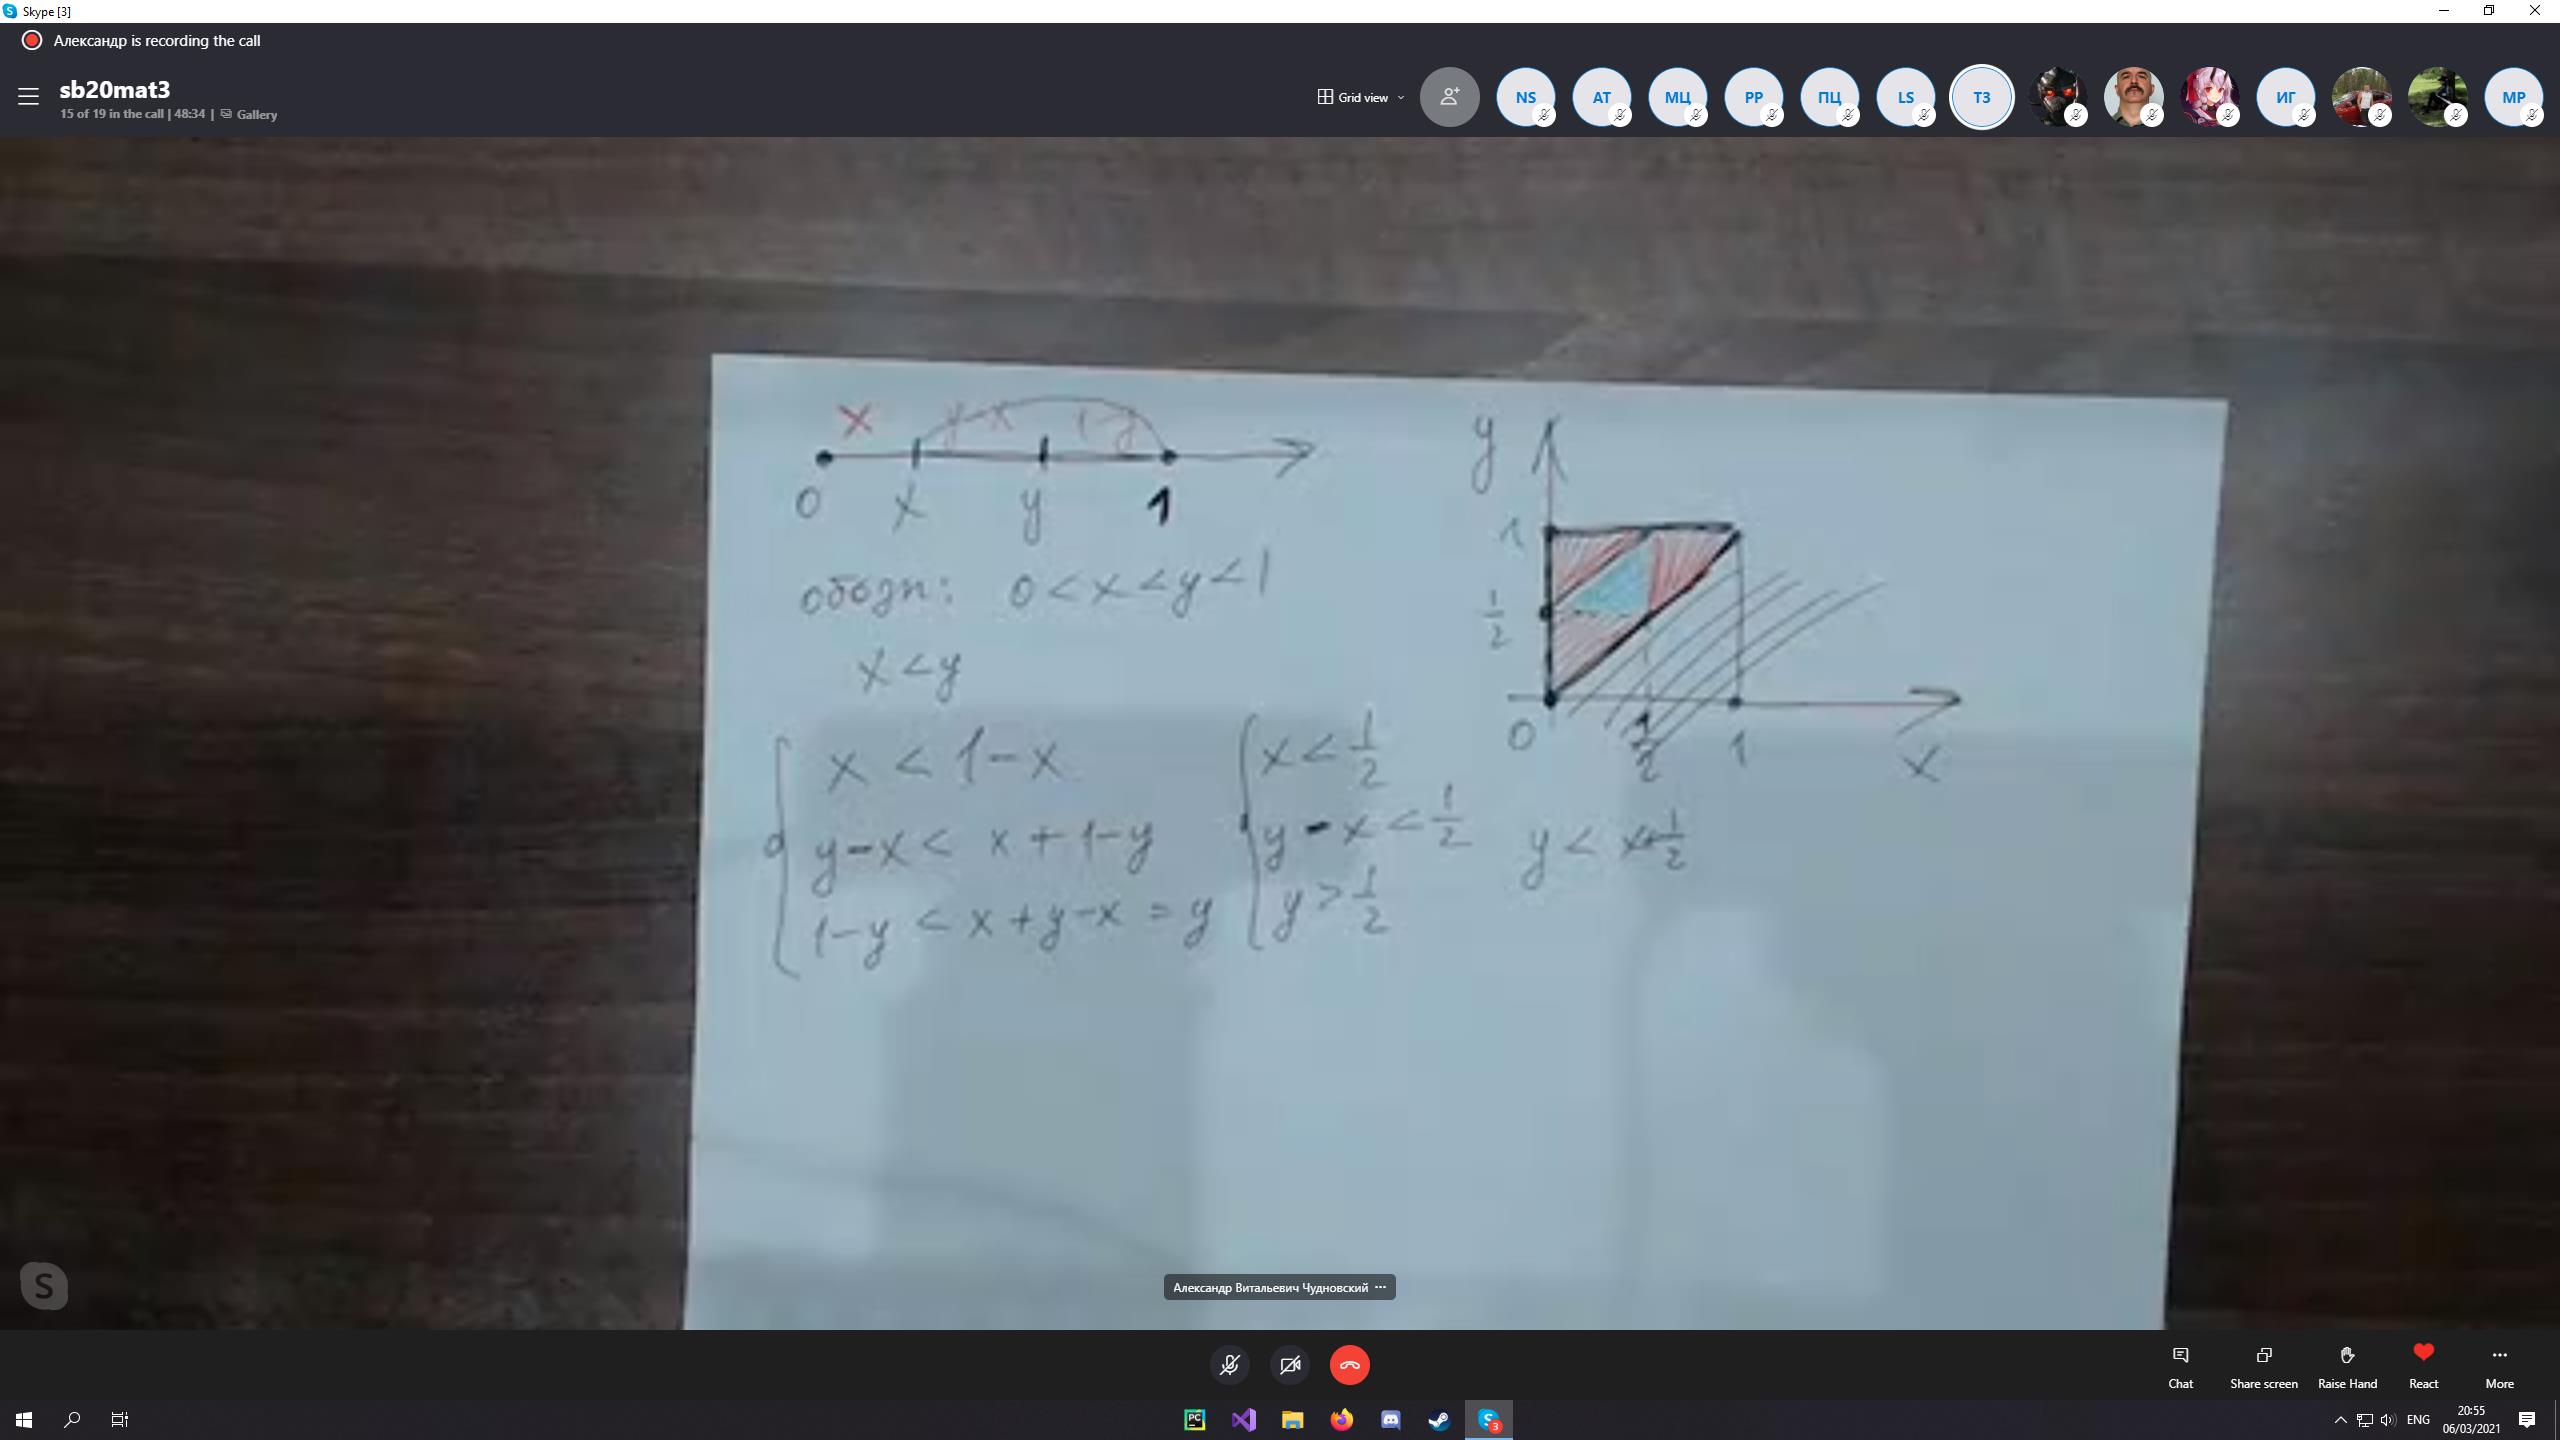 Skype [3]
Александр is recording the call
sb20mat3
15 of 19 in the call | 48:34 | Gallery
Grid view
NS
AT
МЦ
PP
ПЦ
LS
ТЗ
ИГ
MP
x y-x 1-y
0 x y 1
обозн: 0 < x < y < 1
x < y
x < 1-x
y-x < x + 1-y
1-y < x + y-x = y
x < 1/2
y - x < 1/2
y > 1/2
y < x+1/2
y
1
1/2
0 1/2 1 x
Александр Витальевич Чудновский ...
Chat
Share screen
Raise Hand
React
More
PC
S
3
ENG
20:55
06/03/2021